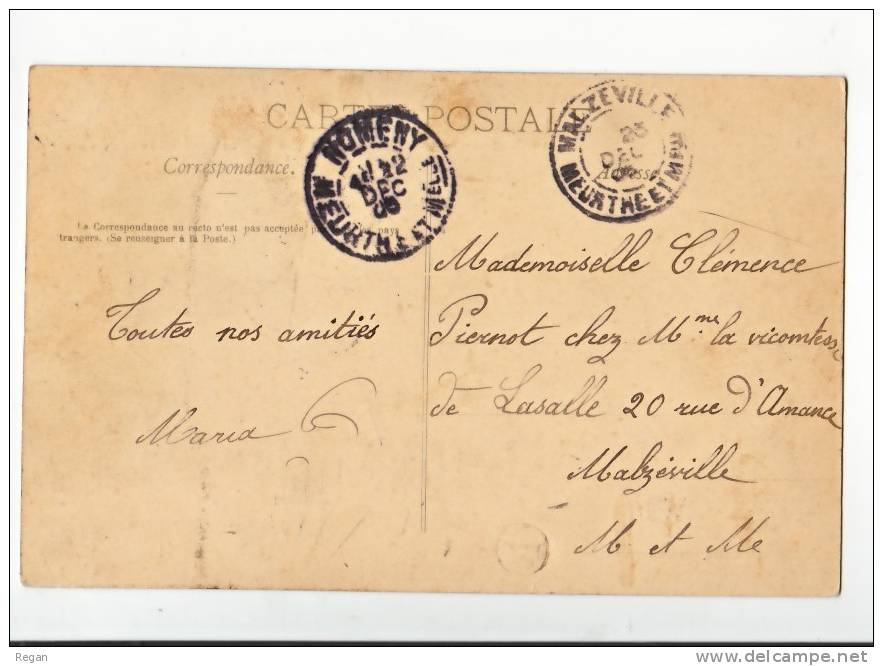 CARTE POSTALE
Correspondance.
Adresse
La Correspondance au recto n'est pas acceptée pays
trangers. (Se renseigner à la Poste.)
NOMENY
DEC
MEURTHE ET MELLE
MALZEVILLE
23
DEC
MEURTHE ET M
Toutes nos amitiés
Maria
Mademoiselle Clémence
Piernot chez Mme la vicomtesse
de Lasalle 20 rue d'Amance
Malzéville
M et Me
Regan
www.delcampe.net